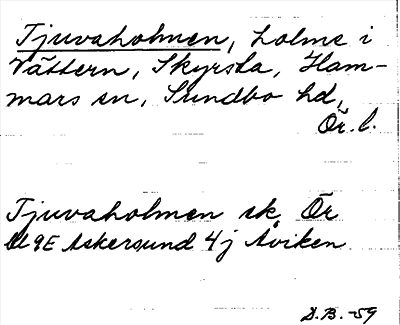 Tjuvaholmen, holme i
Vättern, Skyrsta, Ham-
mars sn, Sundbo hd,
Ör. l.
Tjuvaholmen ek Ör
9E Askersund 4j Åviken
D.B. -59